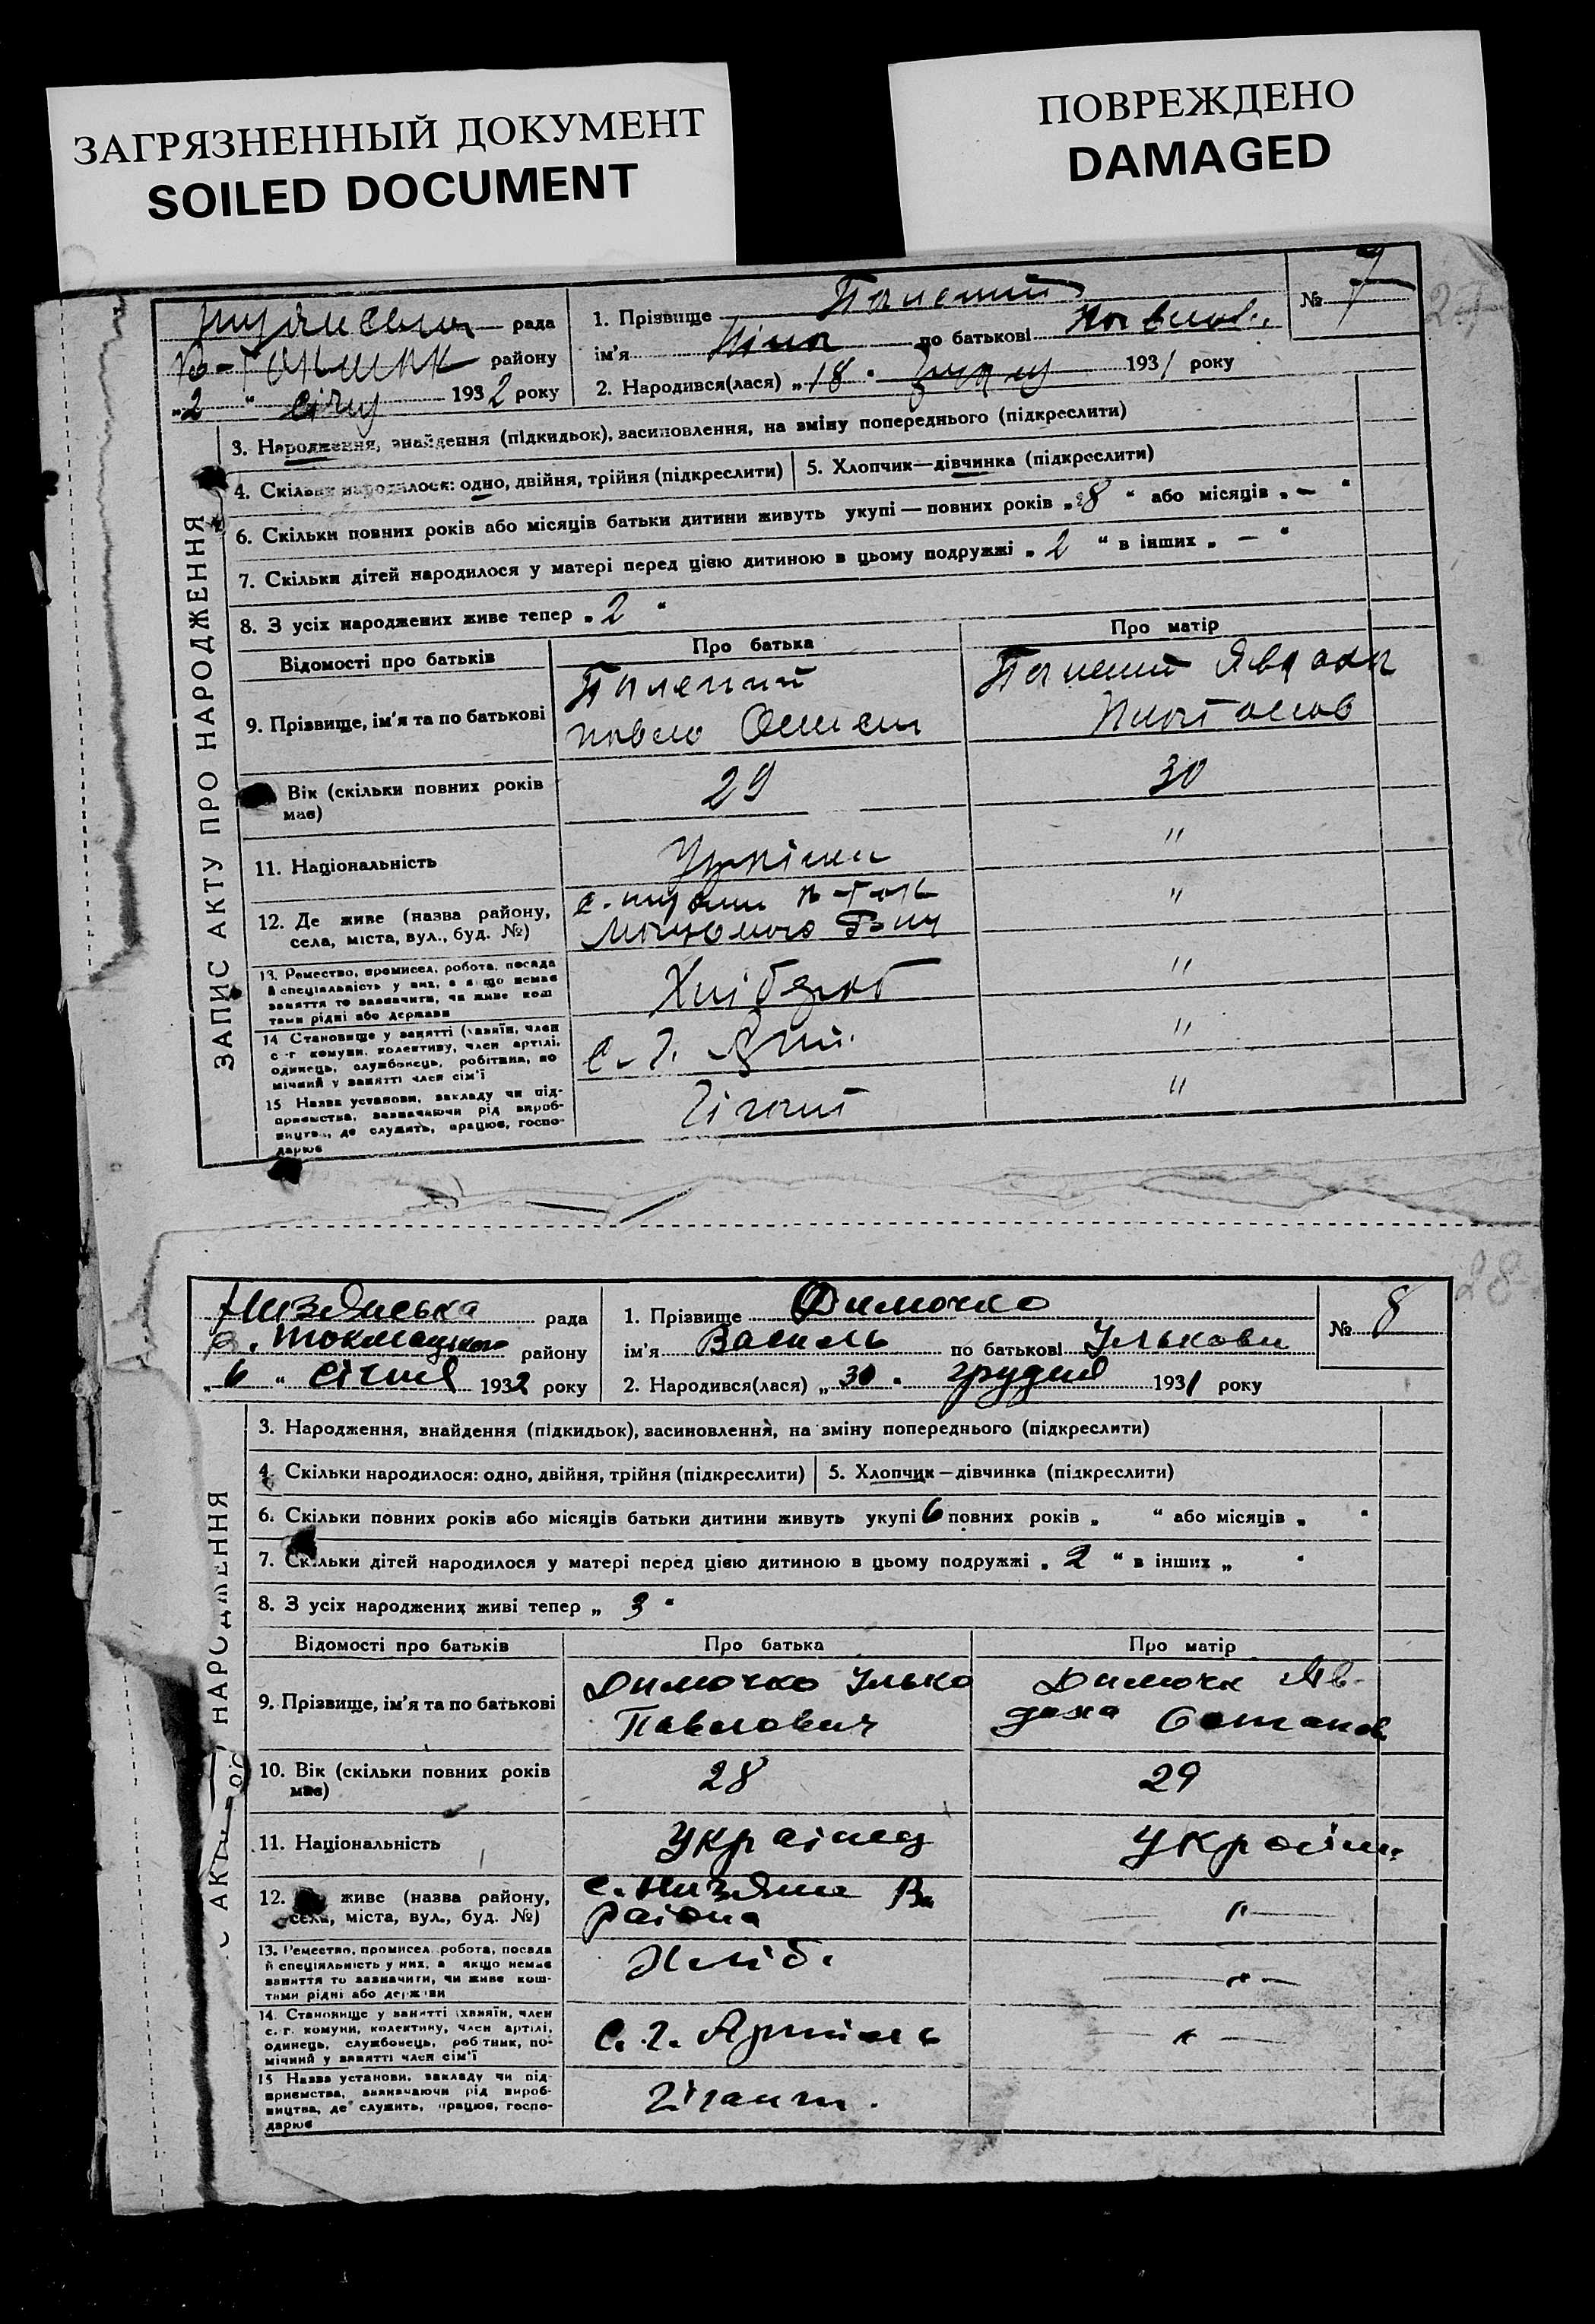 ЗАГРЯЗНЕННЫЙ ДОКУМЕНТ
SOILED DOCUMENT
ПОВРЕЖДЕНО
DAMAGED
рада
району
"2" січня 1932 року
1. Прізвище
№ 7
27
ім'я Ніна по батькові
2. Народився(лася) "18" грудня 1931 року
ЗАПИС АКТУ ПРО НАРОДЖЕННЯ
3. Народження, знайдення (підкидьок), засиновлення, на зміну попереднього (підкреслити)
4. Скільки народилося: одно, двійня, трійня (підкреслити)
5. Хлопчик—дівчинка (підкреслити)
6. Скільки повних років або місяців батьки дитини живуть укупі — повних років "8" або місяців " — "
7. Скільки дітей народилося у матері перед цією дитиною в цьому подружжі " 2 " в інших " — "
8. З усіх народжених живе тепер " 2 "
Відомості про батьків
Про батька
Про матір
9. Прізвище, ім'я та по батькові
Павло
Вік (скільки повних років має)
29
30
11. Національність
"
12. Де живе (назва району, села, міста, вул., буд. №)
"
13. Ремество, промисел, робота, посада й спеціяльність у них, а якщо немає заняття то зазначити, чи живе коштами рідні або держави
Хлібороб
"
14 Становище у занятті (хазяїн, член с.-г комуни, колективу, член артілі, одинець, службовець, робітник, помічний у занятті член сім'ї
с. г. Арт.
"
15 Назва установи, закладу чи підприємства, зазначаючи рід виробництва, де служить, працює, господарює
Гігант
"
Низянська рада
В. Токмацького району
"6" січня 1932 року
1. Прізвище Димочко
№ 8
28
ім'я Василь по батькові Ількови
2. Народився(лася) "30" грудня 1931 року
НАРОДЖЕННЯ
3. Народження, знайдення (підкидьок), засиновлення, на зміну попереднього (підкреслити)
4. Скільки народилося: одно, двійня, трійня (підкреслити)
5. Хлопчик—дівчинка (підкреслити)
6. Скільки повних років або місяців батьки дитини живуть укупі 6 повних років " " або місяців " "
7. Скільки дітей народилося у матері перед цією дитиною в цьому подружжі " 2 " в інших " "
8. З усіх народжених живі тепер " 3 "
Відомості про батьків
Про батька
Про матір
9. Прізвище, ім'я та по батькові
Димочко Ілько
Павлович
Димочк Яв-
доха Остапов
10. Вік (скільки повних років має)
28
29
11. Національність
Українец
Україн.
12. живе (назва району, села, міста, вул., буд. №)
с. Низяне В.
района
— " —
13. Ремество, промисел, робота, посада й спеціяльність у них, а якщо немає заняття то зазначити, чи живе коштами рідні або держави
Хліб.
— " —
14. Становище у занятті (хазяїн, член с. г. комуни, колективу, член артілі, одинець, службовець, робітник, помічний у занятті член сім'ї
С. г. Артіль
— " —
15 Назва установи, закладу чи підприємства, зазначаючи рід виробництва, де служить, працює, господарює
Гігант.